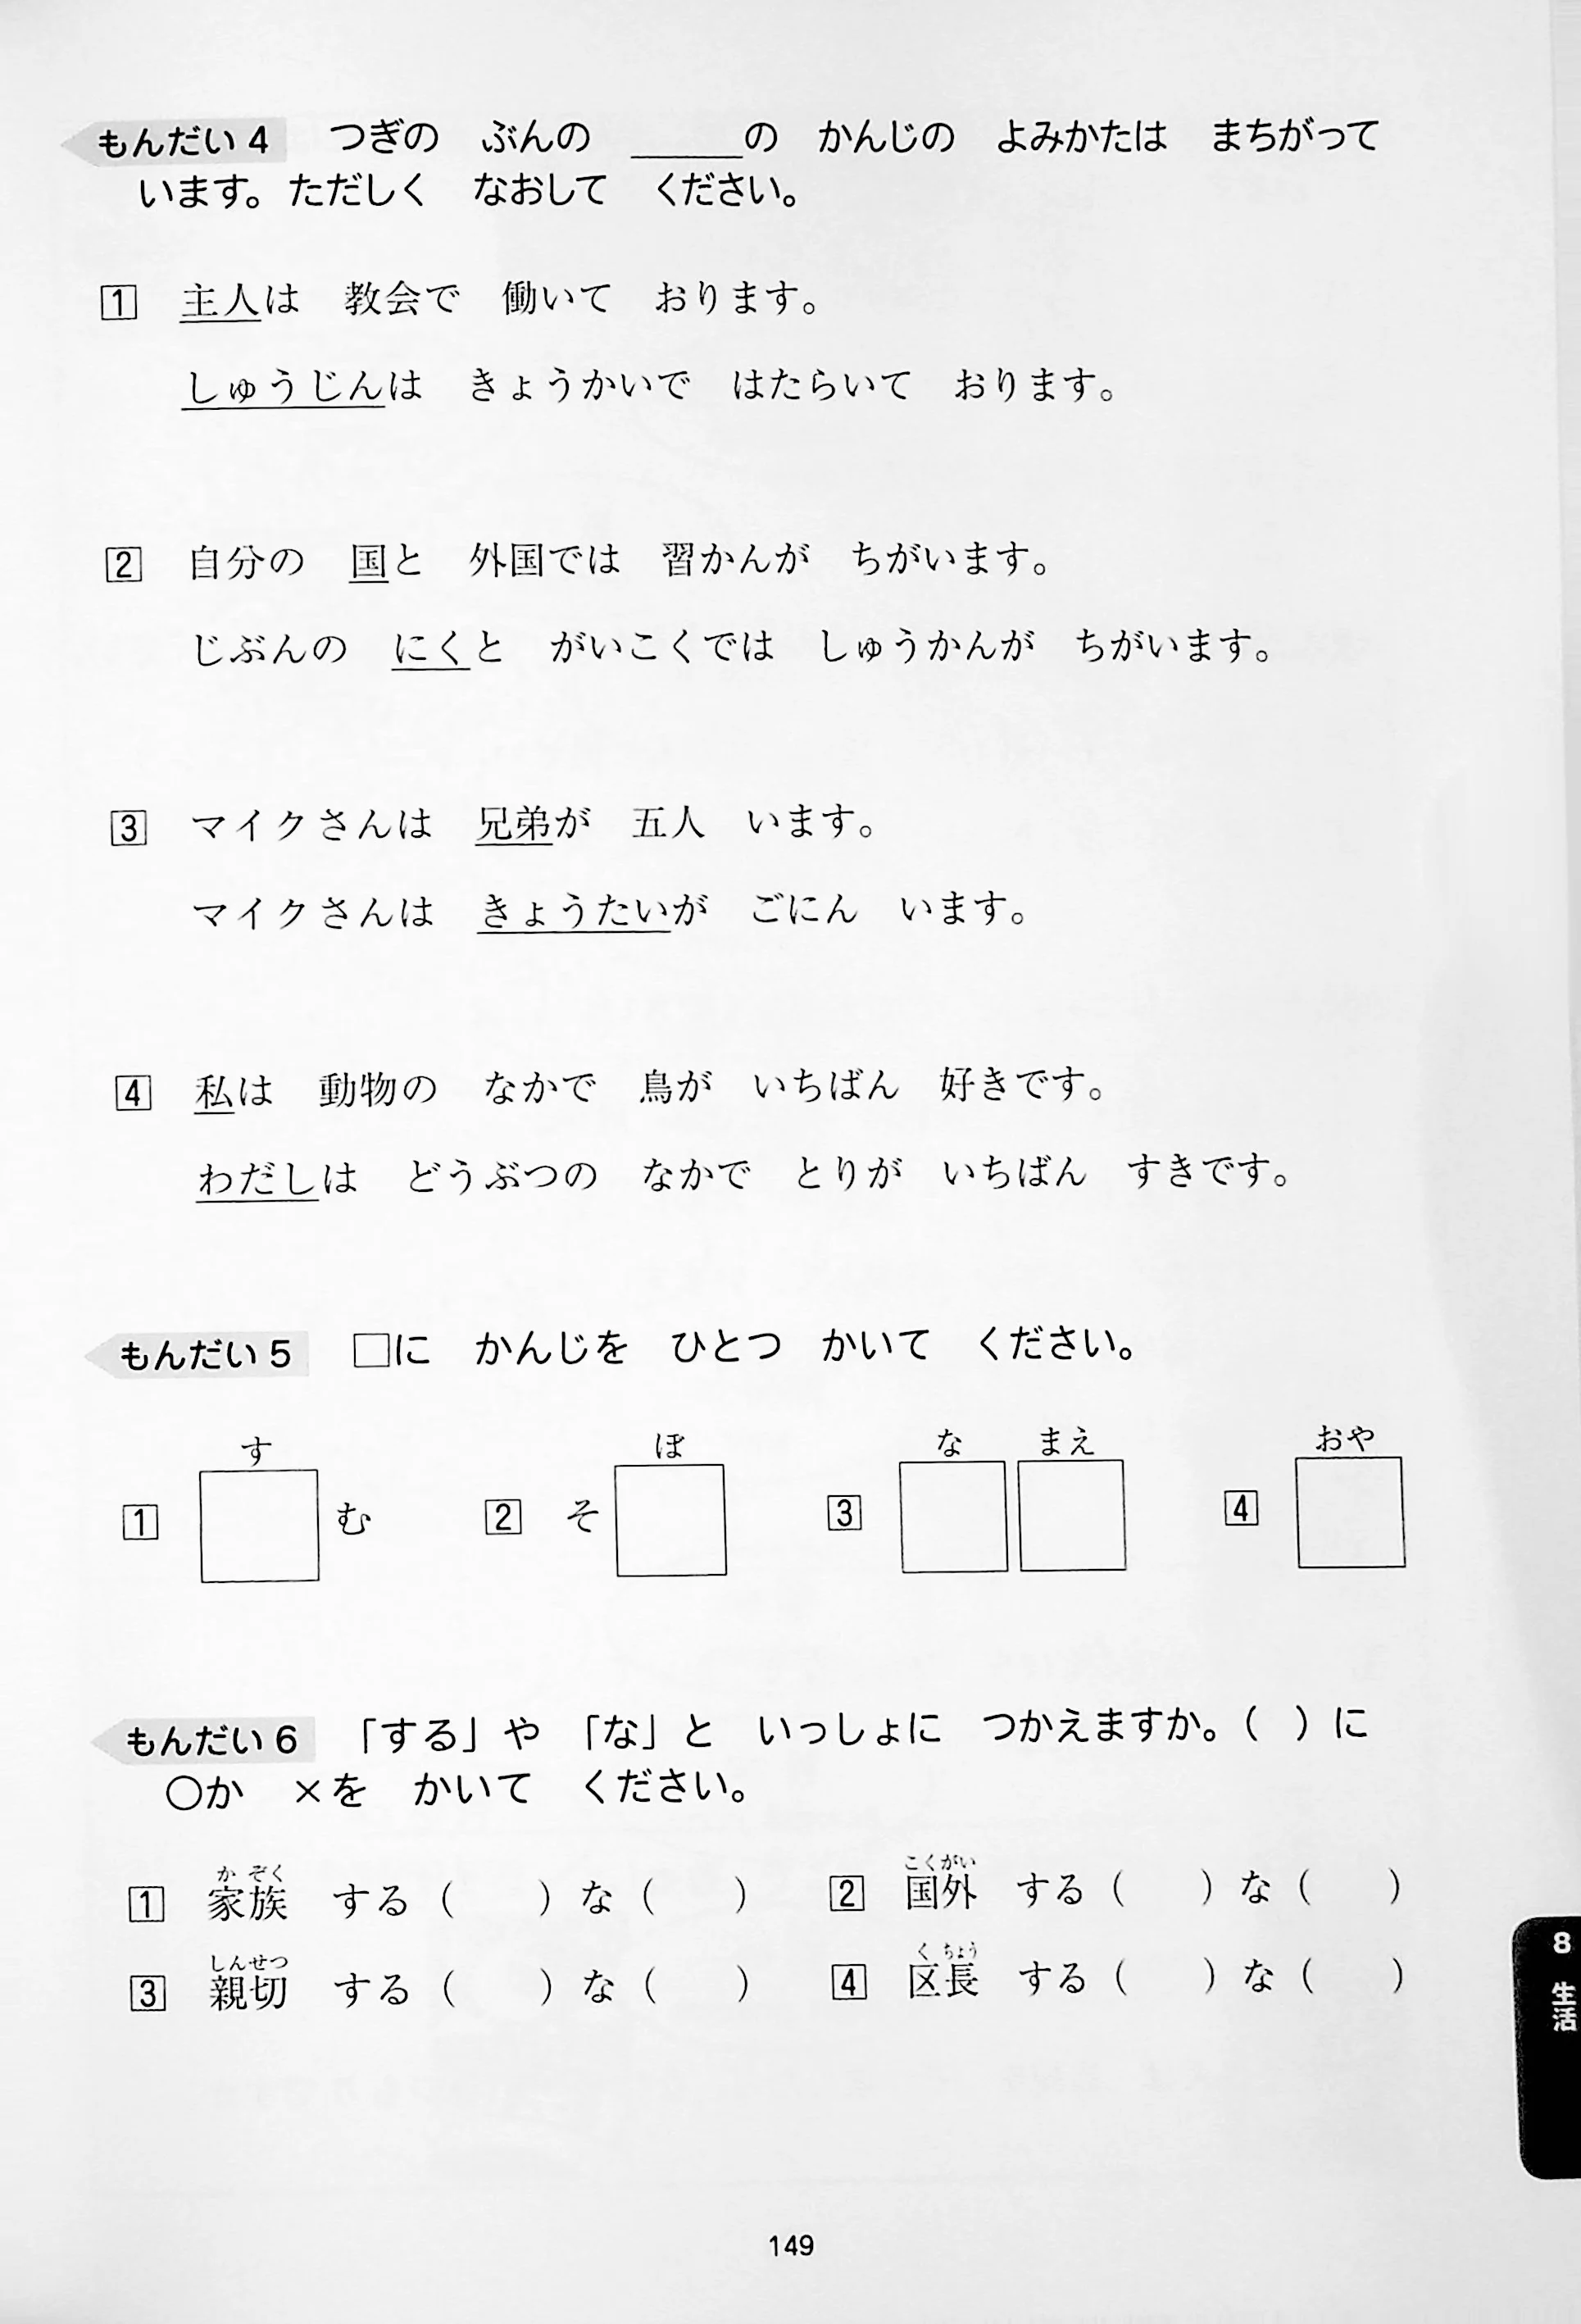 もんだい 4　つぎの　ぶんの　＿＿＿の　かんじの　よみかたは　まちがって
います。ただしく　なおして　ください。
1　主人は　教会で　働いて　おります。
しゅうじんは　きょうかいで　はたらいて　おります。
2　自分の　国と　外国では　習かんが　ちがいます。
じぶんの　にくと　がいこくでは　しゅうかんが　ちがいます。
3　マイクさんは　兄弟が　五人　います。
マイクさんは　きょうたいが　ごにん　います。
4　私は　動物の　なかで　鳥が　いちばん　好きです。
わだしは　どうぶつの　なかで　とりが　いちばん　すきです。
もんだい 5　□に　かんじを　ひとつ　かいて　ください。
す　ぼ　な　まえ　おや
1　□む　2　そ□　3　□□　4　□
もんだい 6　「する」や　「な」と　いっしょに　つかえますか。(　)に
○か　×を　かいて　ください。
かぞく　こくがい
1　家族　する（　）な（　）　2　国外　する（　）な（　）
しんせつ　くちょう
3　親切　する（　）な（　）　4　区長　する（　）な（　）
8 生活
149